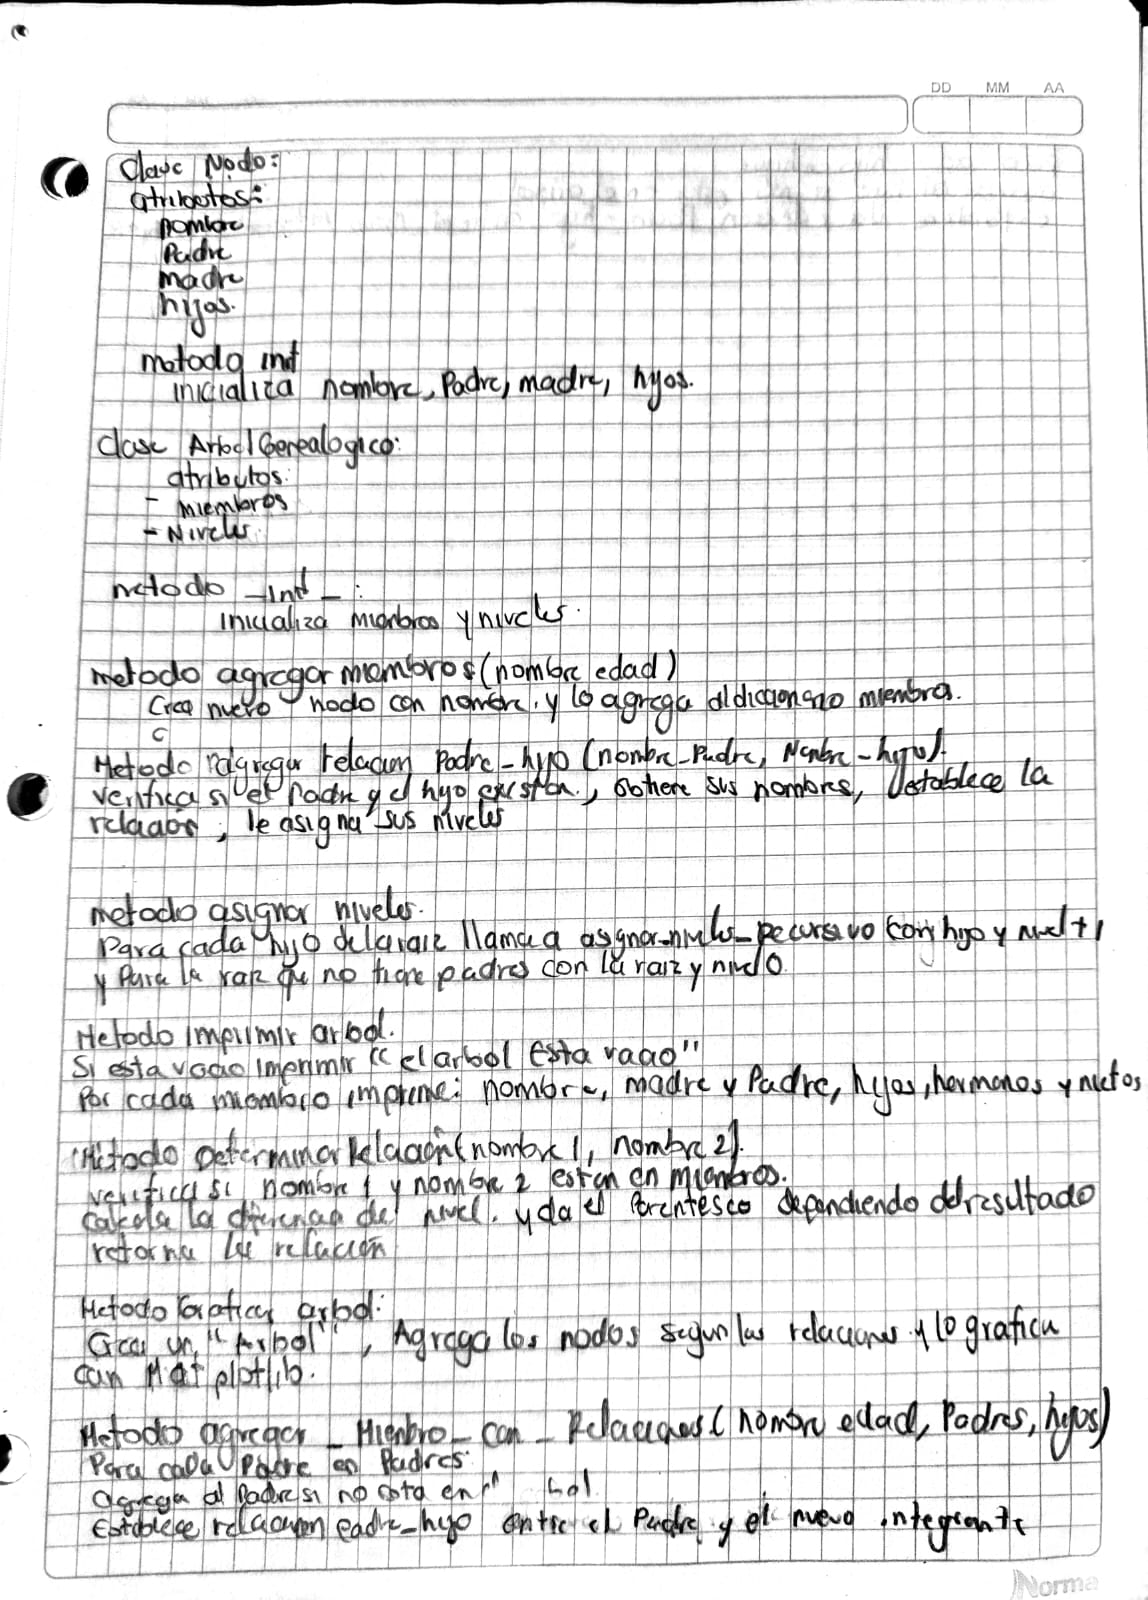 DD MM AA
Clase Nodo:
atributos:
nombre
Padre
madre
hijos.
metodo init
inicializa nombre, Padre, madre, hijos.
clase Arbol Genealogico:
atributos:
- miembros
- Niveles.
metodo _init_:
Inicializa miembros y niveles.
metodo agregar miembros (nombre edad)
Crea nuevo nodo con nombre. y lo agrega al diccionario miembros.
c
Metodo agregar relacion Padre-hijo (nombre-Padre, Nombre-hijo).
verifica si el Padre y el hijo existen., obtiene sus nombres, establece la
relacion, le asigna sus niveles
metodo asignar niveles.
Para cada hijo de la raiz llama a asignar-niveles-recursivo con hijo y nivel+1
y Para la raiz que no tiene padres con la raiz y nivel 0.
Metodo imprimir arbol.
Si esta vacio imprimir "el arbol Esta vacio"
Por cada miembro imprime: nombre, madre y Padre, hijos, hermanos y nietos
Metodo Determinar Relación (nombre 1, nombre 2).
verifica si nombre 1 y nombre 2 estan en miembros.
calcula la diferencia del nivel. y da el Parentesco dependiendo del resultado
retorna la relación
Metodo Graficar arbol:
Crea un "Arbol", Agrega los nodos segun las relaciones y lo grafica
con Matplotlib.
Metodo agregar _ Miembro _ con _ Relaciones (nombre edad, Padres, hijos)
Para cada Padre en Padres:
agrega al Padre si no esta en
Establece relacion padre-hijo entre el Padre y el nuevo integrante
Norma